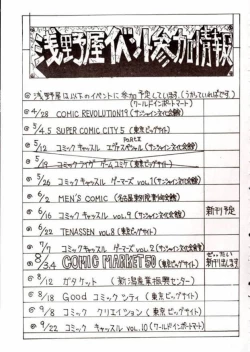 浅野屋イベント参加情報
◎浅野屋は以下のイベントに参加予定としています。(うかっていればです)
(ワールドインポートマート)
◎4/28 COMIC REVOLUTION19 (サンシャイン文化会館)
◎5/4.5 SUPER COMIC CITY 5 (東京ビッグサイト)
◎5/12 コミックキャッスル スペシャル (サンシャイン文化会館)
◎5/19 コミックライブ ゲームコミケ (東京ビッグサイト)
◎5/26 コミックキャッスル ゲーマーズ vol.1 (サンシャイン文化会館)
◎6/2 MEN'S COMIC (名古屋市)
◎6/16 コミックキャッスル vol.9 (サンシャイン文化会館) 新刊予定
◎6/22 TENASSEN vol.8 (東京ビッグサイト)
◎7/ コミックキャッスル ゲーマーズ vol.2 (サンシャイン文化会館)
◎8/3.4 COMIC MARKET 50 (東京ビッグサイト) ぜったい新刊出します
◎8/12 ガタケット (新潟産業振興センター)
◎8/18 Good コミックシティ (東京ビッグサイト)
◎9/8 コミック クリエイション (東京ビッグサイト)
◎9/22 コミック キャッスル vol.10 (ワールドインポートマート)